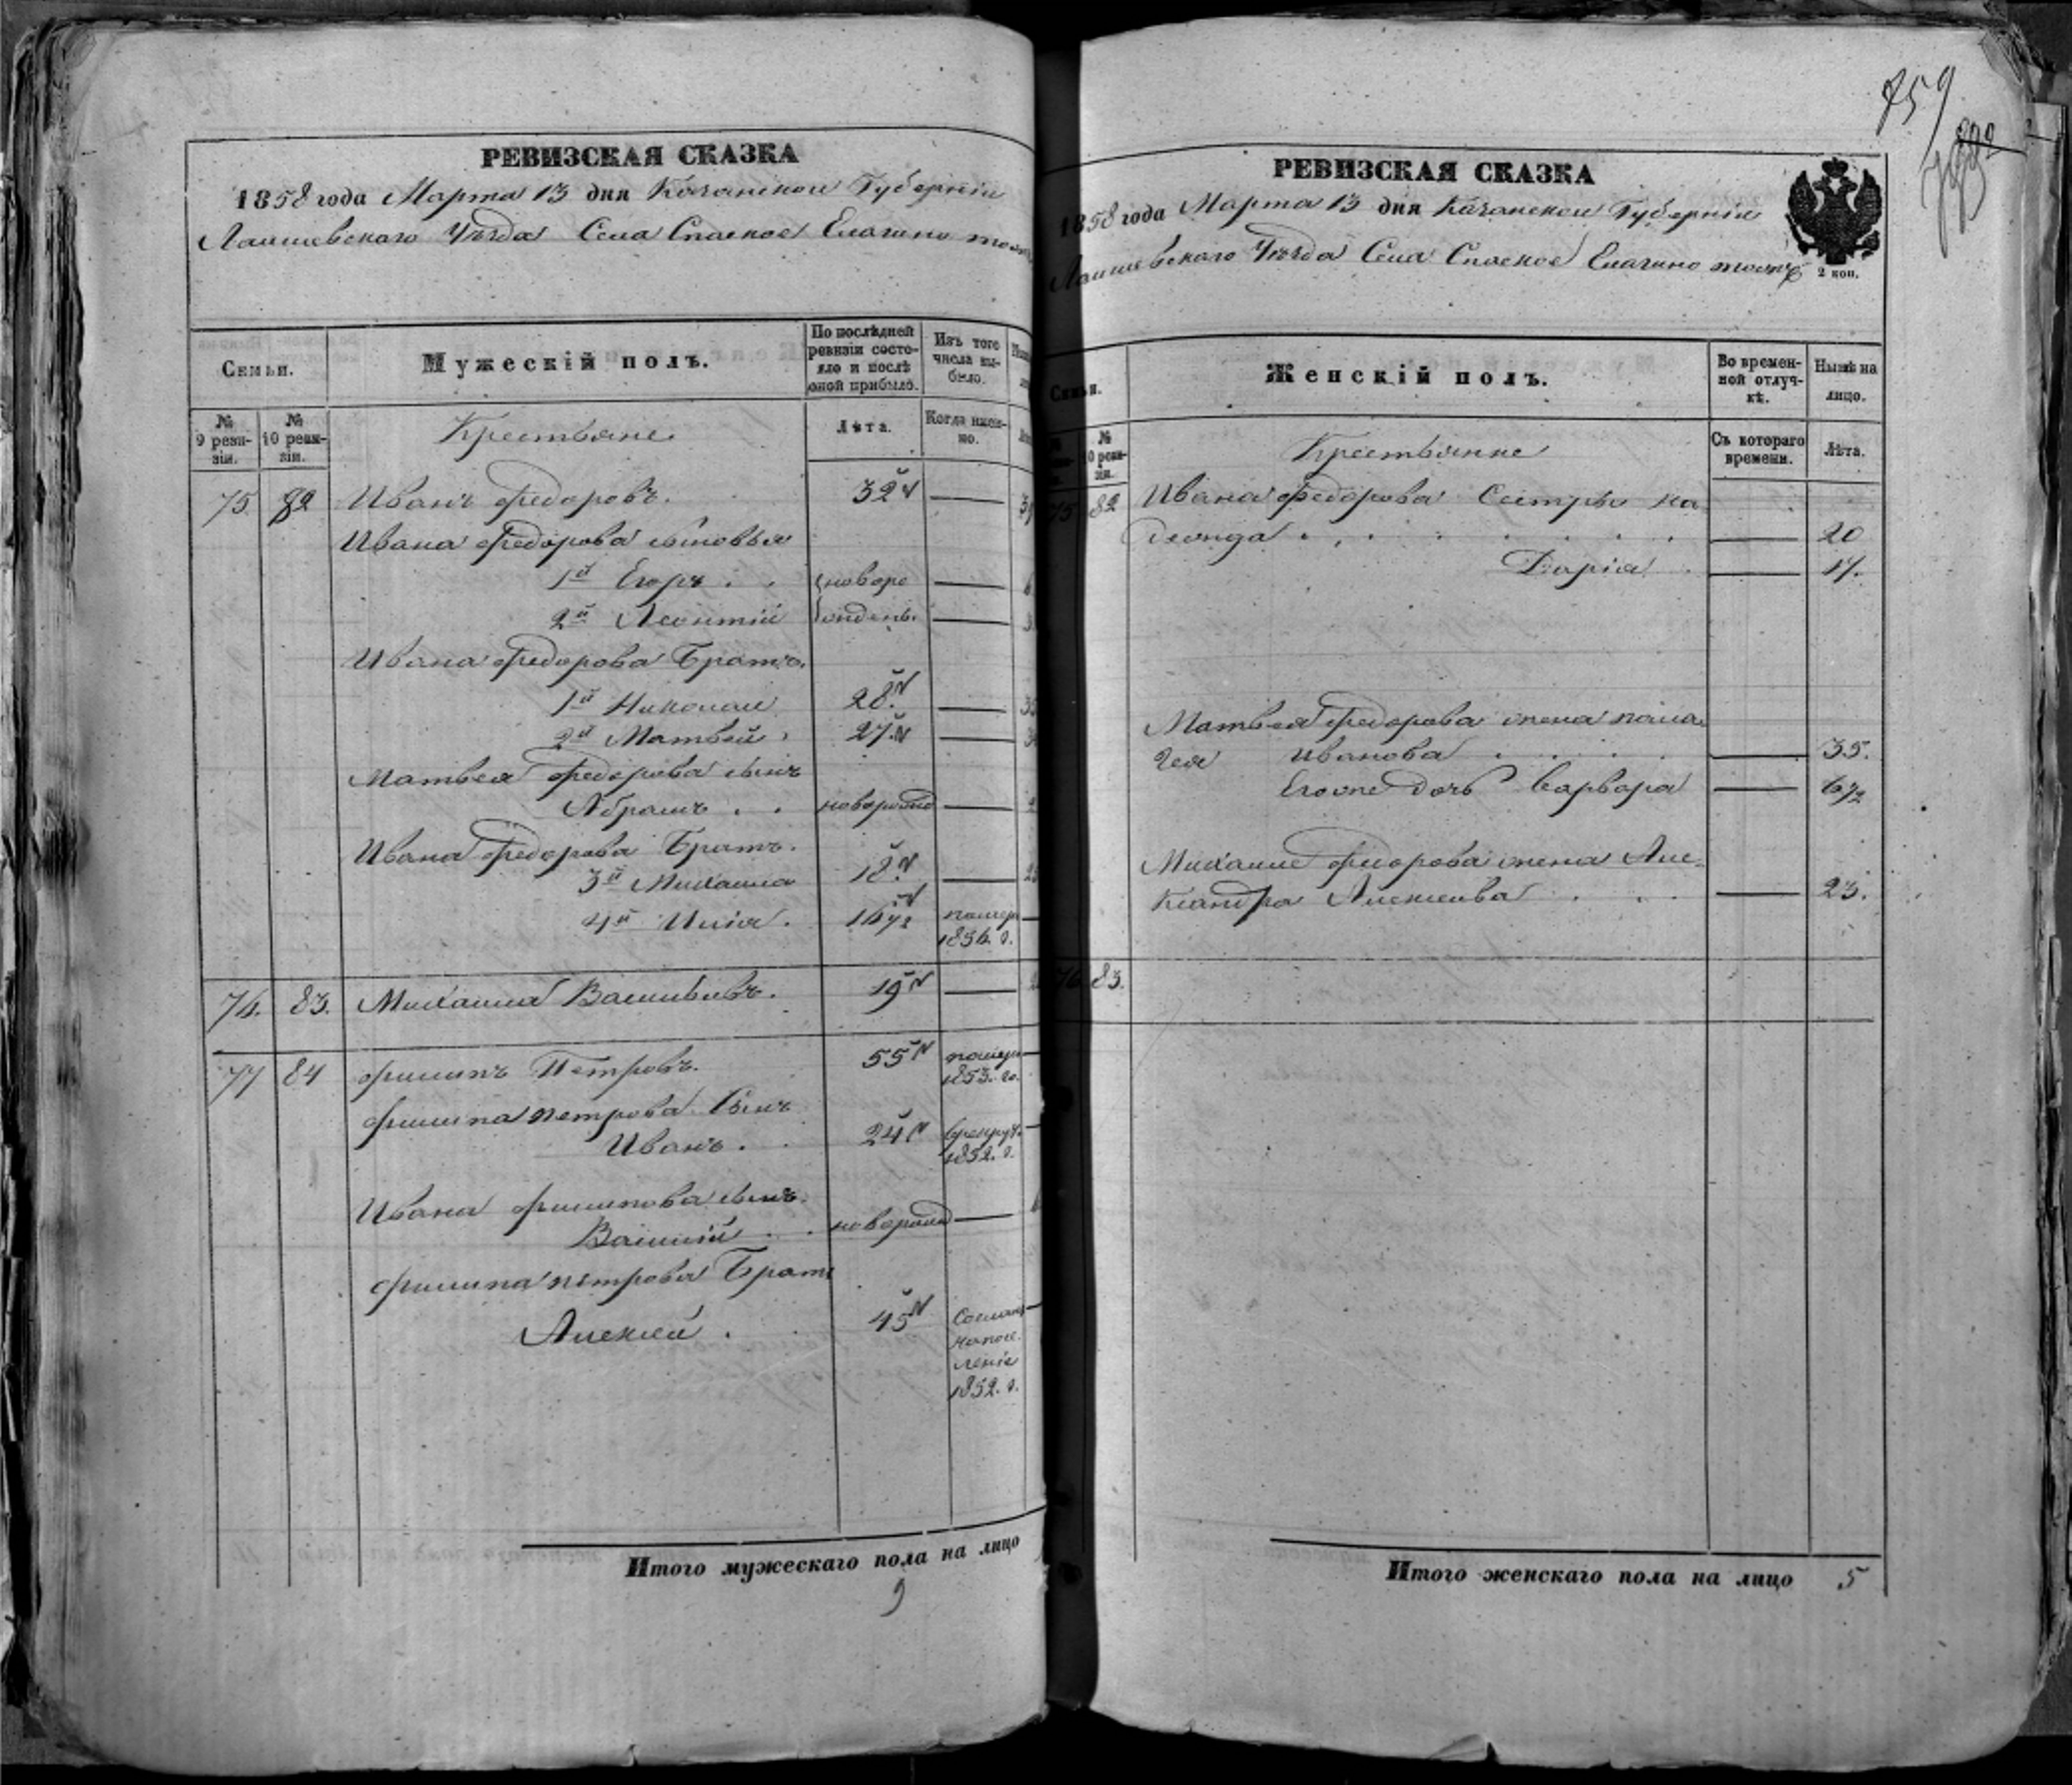 РЕВИЗСКАЯ СКАЗКА
1858 года Марта 13 дня Казанской Губерніи
Лаишевскаго Уѣзда Села Спаское Елагино
Семьи.
Мужескій полъ.
По послѣдней ревизіи состо-
яло и послѣ
оной прибыло.
Изъ того
числа вы-
было.
№
9 реви-
зіи.
№
10 реви-
зіи.
Крестьяне
Лѣта.
Когда имен-
но.
75 82 Иванъ Федоровъ. 32
Ивана Федорова сыновья
1й Егоръ новоро
2й Леонтій жденъ.
Ивана Федорова Братъ.
1й Николай 28.
2й Матвей 27.
Матвея Федорова сынъ
Абрамъ новорожд
Ивана Федорова Братъ.
3й Михаила 18.
4й Илія. 16 1/2 помер
1856. г.
76. 83. Михаила Васильевъ. 19
77 84 Филипъ Петровъ. 55 помер
1853. го.
Филипа Петрова Сынъ
Иванъ. 24 врекрут.
1852. г.
Ивана Филипова сынъ.
Василий новорожд
Филипа Петрова Братъ
Алексей. 45 Сослан
напосе
леніе
1852. г.
Итого мужескаго пола на лицо
9
759
РЕВИЗСКАЯ СКАЗКА
1858 года Марта 13 дня Казанской Губерніи
Лаишевскаго Уѣзда Села Спаское Елагино тожъ
2 коп.
Семьи.
Женскій полъ.
Во времен-
ной отлуч-
кѣ.
Нынѣ на
лицо.
№
10 реви-
зіи.
Крестьянке
Съ котораго
времени.
Лѣта.
75 82 Ивана Федорова Сестры
20
Дарія 17.
Матвея Федорова жена Пела
гея Иванова 35.
Еговне дочь Варвара 6 1/2
Михаиле Федорова жена Але
ксандра Алексеева 23.
76 83.
Итого женскаго пола на лицо 5